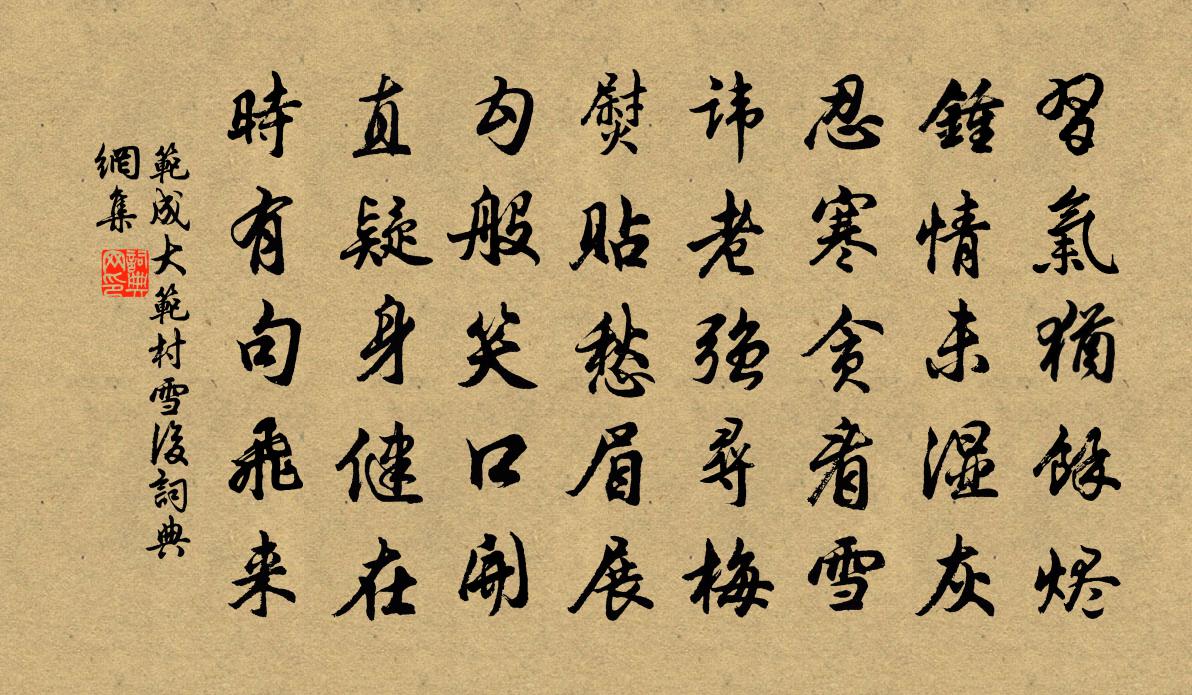 習氣猶餘烬
鍾情未湿灰
忍寒貪看雪
讳老强尋梅
熨貼愁眉展
勾般笑口開
直疑身健在
時有句飛来
範成大範村雪後詞典
網集
詞典
网印